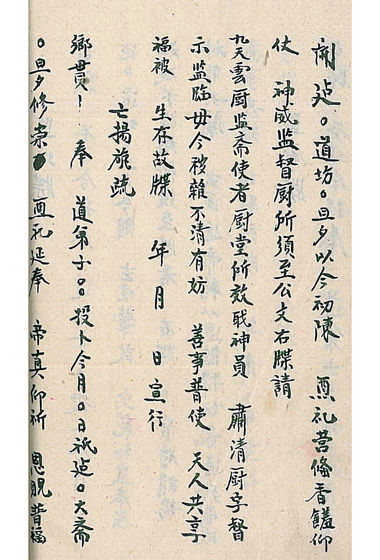 開建○道坊○旦夕以今初陳 醮礼营俻香饈仰
仗 神威监督厨所須至公文右牒請
九天雲厨监斋使者厨堂所效职神員 肅清厨字督
示监臨毋令秽雜不清有妨 善事普使 天人共享
福被 生存故牒 年 月 日宣行
亡揚旅疏
鄉貫! 奉 道弟子○○投卜今月○日祇建○大斋
○旦夕修崇 醮礼延奉 帝真仰祈 恩貺普福